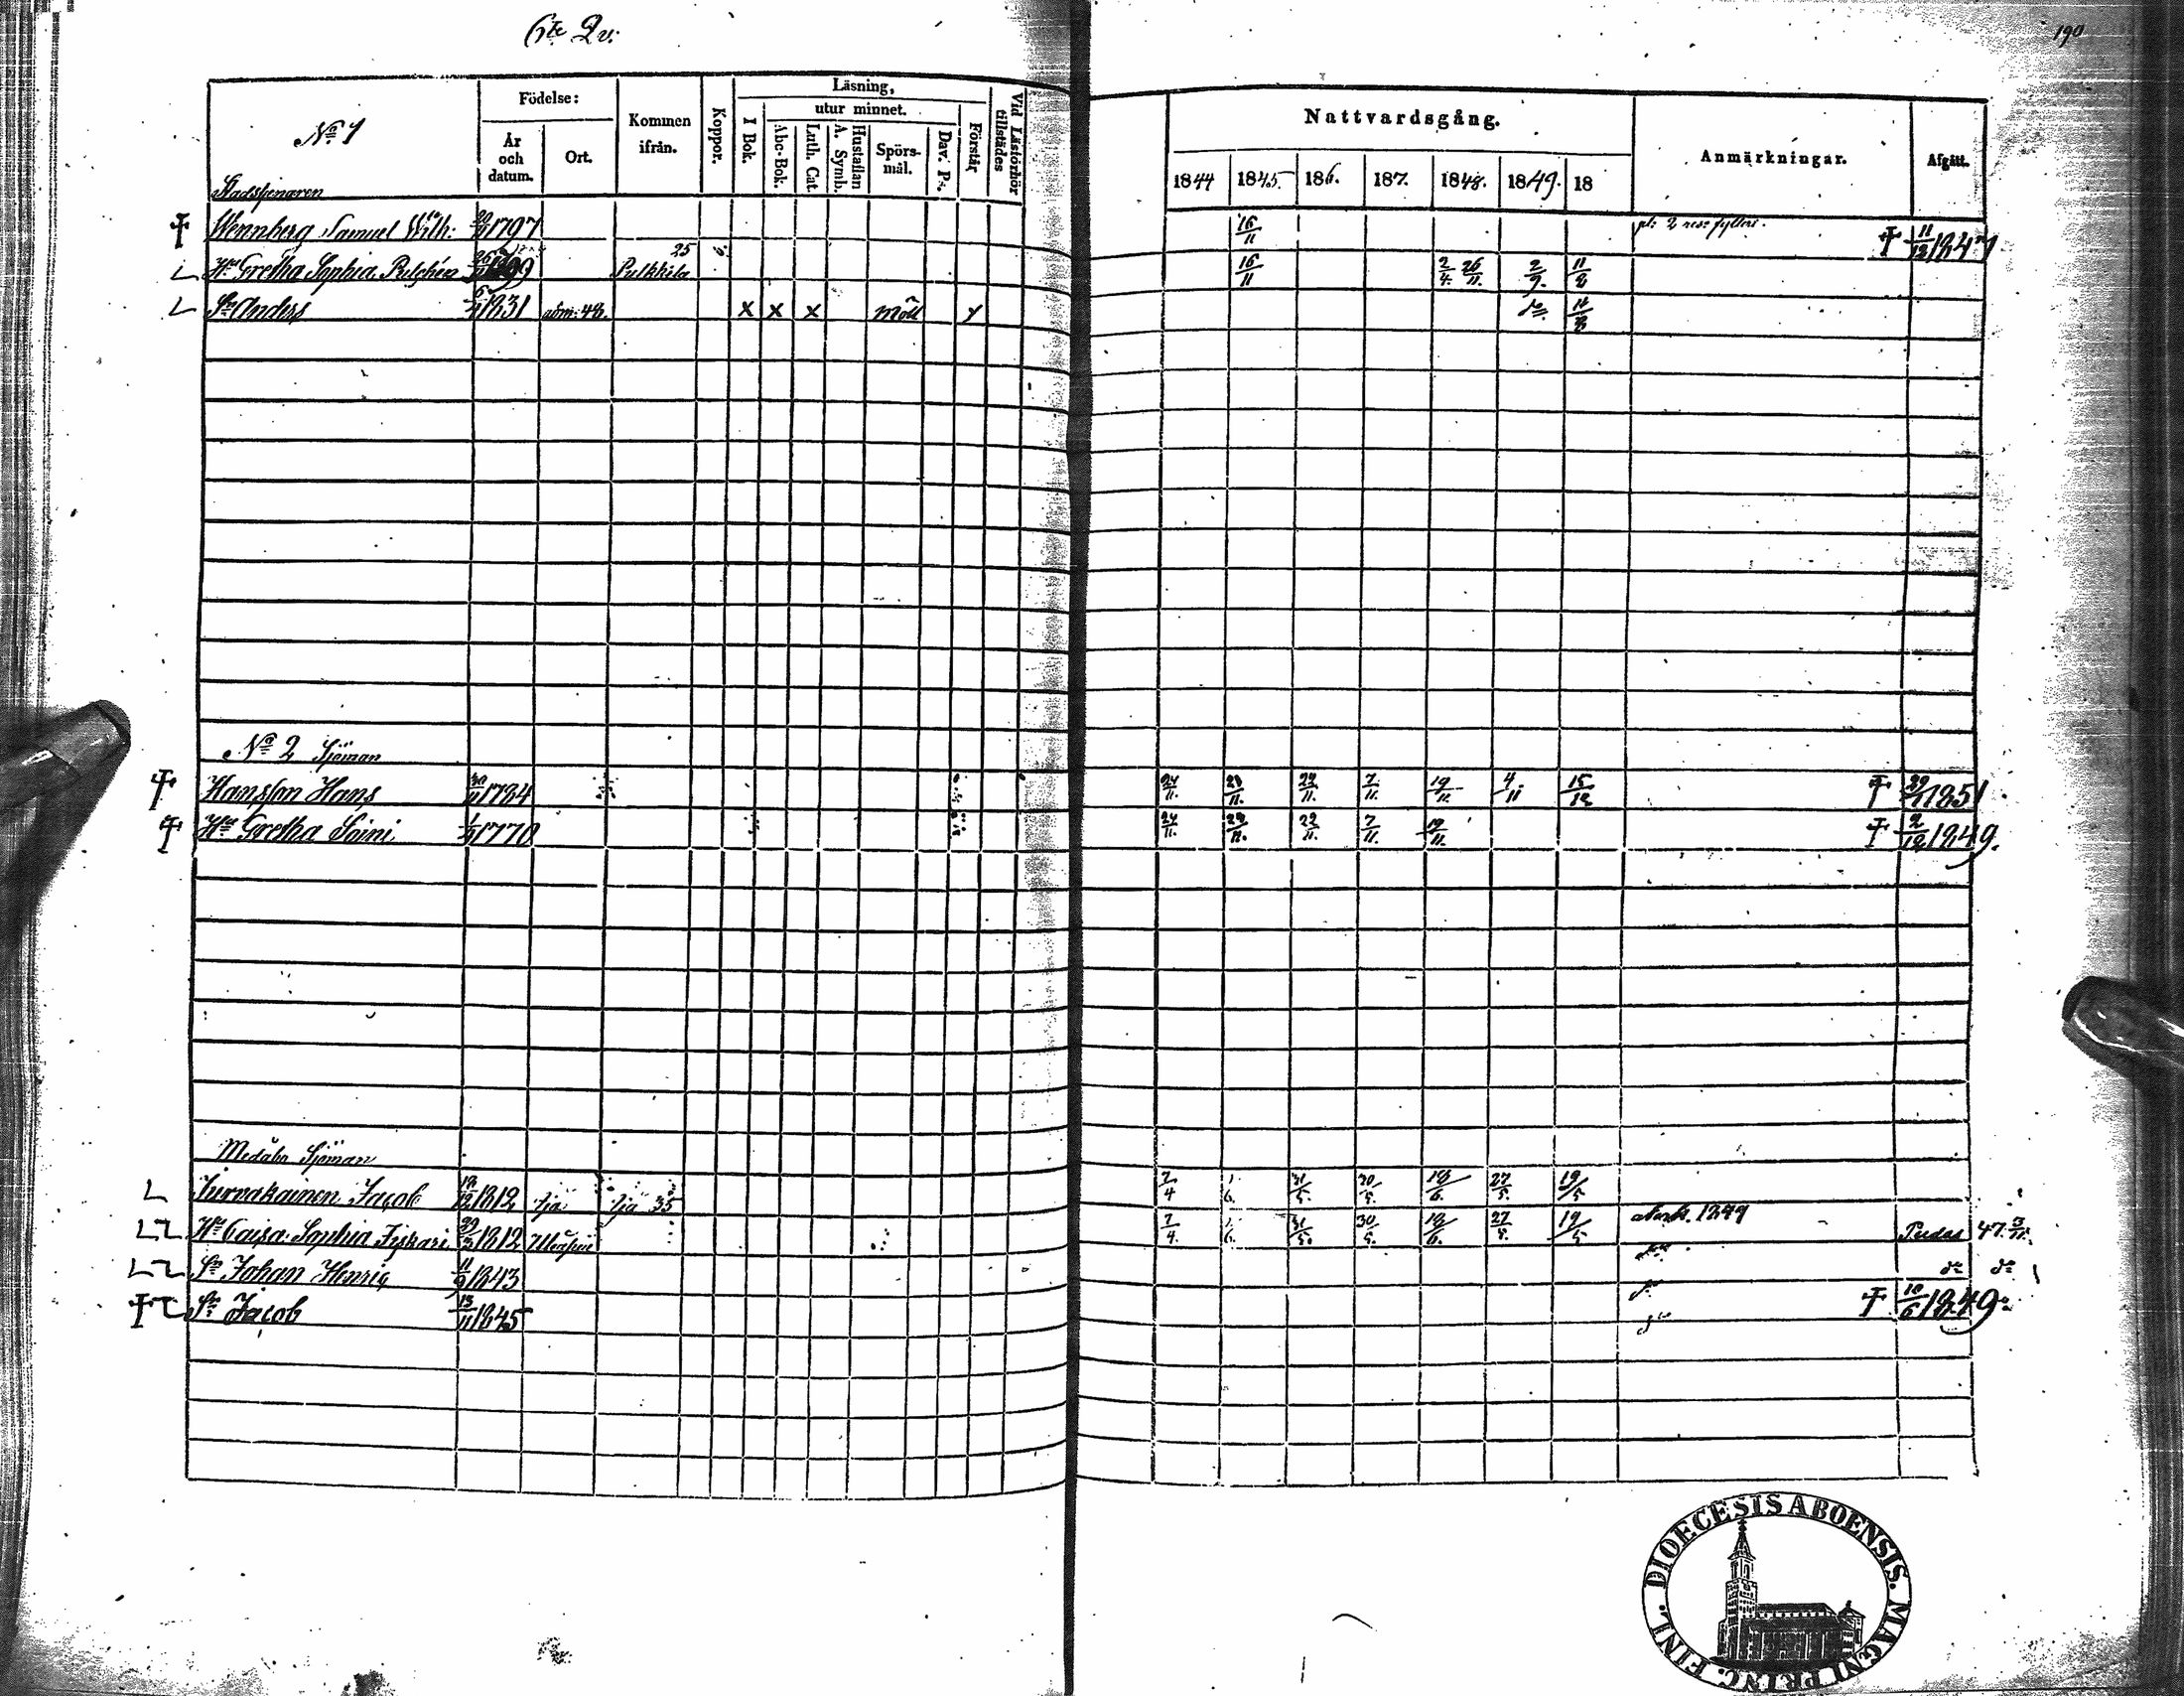 6te Qv:
190
Födelse:
Läsning,
utur minnet.
Nattvardsgång.
No 1
År och datum.
Ort.
Kommen ifrån.
Koppor.
I Bok.
Abc-Bok.
Luth. Cat.
Hustaflan A. Symb.
Spörsmål.
Dav. Ps.
Förstår
Vid Läsförhör tillstädes
1844 1845. 186. 187. 1848. 1849. 18
Anmärkningar.
Afgått.
Stadstjenaren
Wennberg Samuel Wilh: 1797 16/11 11/12 1847
Hu Gretha Sophia Pulchén Pulkkila 25 16/11 2/4. 26/11. 2/9. 11/8
Sn Anders 1831 adm: 48. x x x möll 11/8
No 2 Sjöman
Hansson Hans 30/11 1784 24/11. 23/11. 22/11. 7/11. 19/11. 4/11 15/12 1851.
Hu Gretha Soini 1770 24/11. 23/11. 22/11. 7/11. 19/11. 2/12 1849.
Medåbo Sjöman
Jurvakainen Jacob 12/12 1812 Ijå Ijå 35 7/4 1/6. 31/5. 30/5. 18/6. 27/5. 19/5
Hu Caisa Sophia Fiskari 1812 7/4. 1/6. 31/5. 30/5. 18/6. 27/5. 19/5 1849 Pudas 47.
Sn Johan Henric 11/9 1843 do do
Sn Jacob 13/11 1845 10/6 1849.
DIOECESIS ABOENSIS. MAGNI PRINC. FINL.